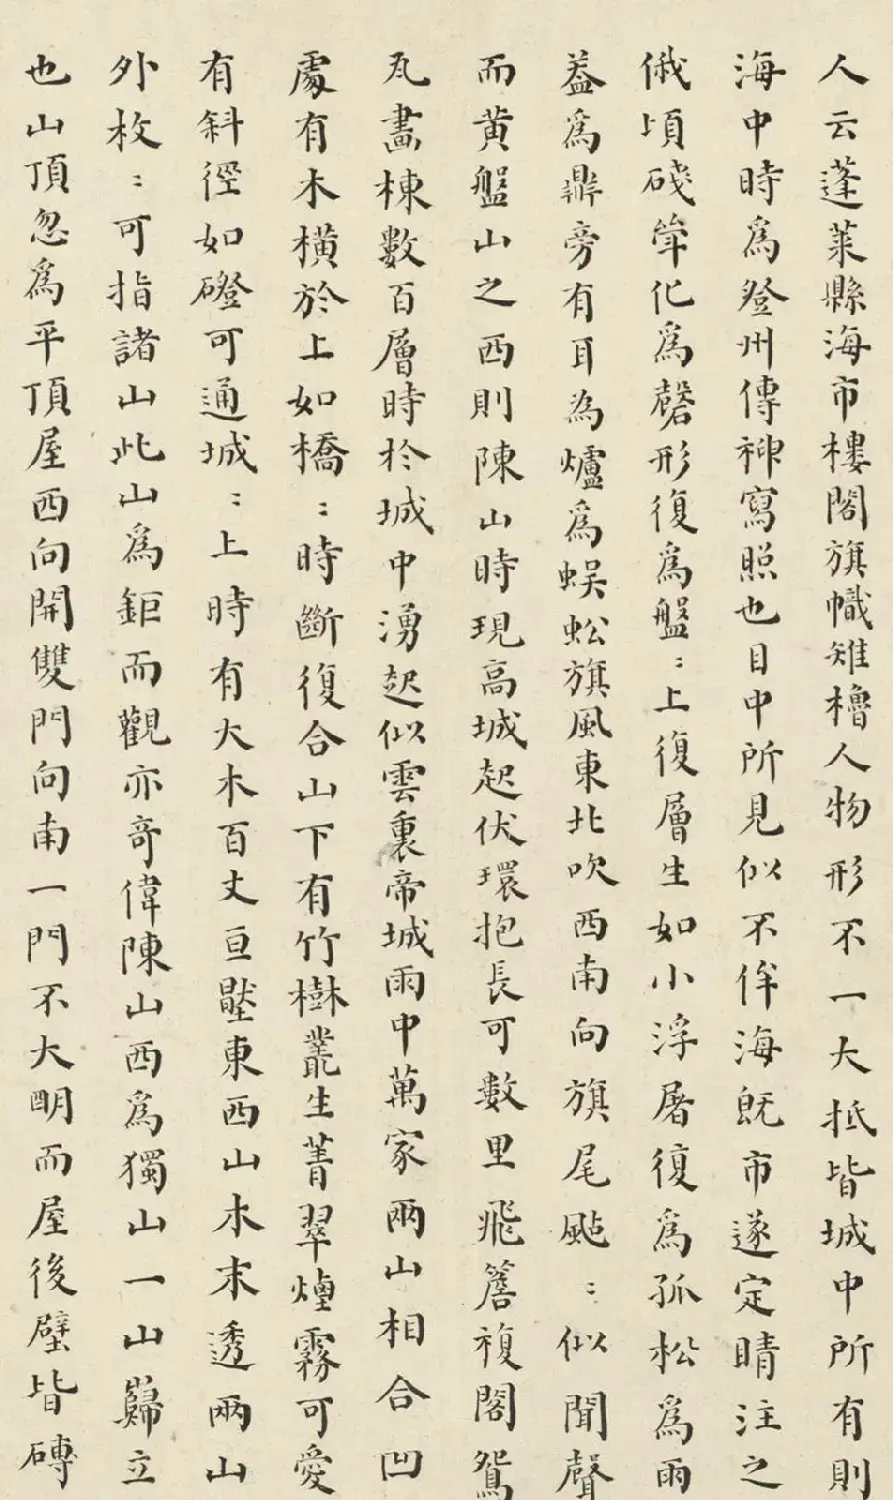 人云蓬萊縣海市樓閣旗幟雉櫓人物形不一大抵皆城中所有則
海中時為登州傳神寫照也目中所見似不侔海既市遂定睛注之
俄頃磩聳化為磬形復為盤〻上復層生如小浮屠復為孤松為雨
葢為鼎旁有耳為爐為蜈蚣旗風東北吹西南向旗尾颭〻似聞聲
而黃盤山之西則陳山時現高城起伏環抱長可數里飛簷複閣鴛
瓦畵棟數百層時於城中湧起似雲裏帝城雨中萬家兩山相合凹
處有木橫於上如橋〻時斷復合山下有竹樹叢生菁翠煙霧可愛
有斜徑如磴可通城〻上時有大木百丈亘壑東西山木末透兩山
外枚〻可指諸山此山為鉅而觀亦奇偉陳山西為獨山一山巋立
也山頂忽為平頂屋西向開雙門向南一門不大明而屋後壁皆磚